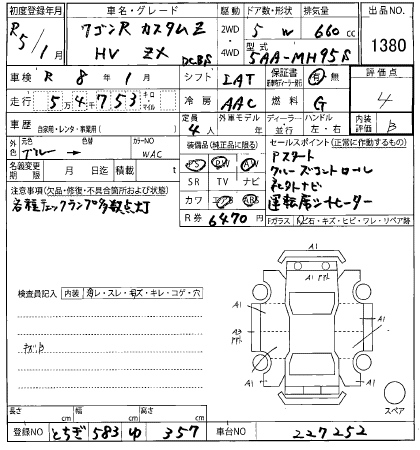 初度登録年月 車名・グレード 駆動 ドア数・形状 排気量 出品NO.
R5/1月 ワゴンR カスタムZ 2WD 5 W 660 cc
HV ZX DCBS 4WD 型式 5AA-MH95S 1380
車検 R 8年 1月 シフト IAT 保証書 有 無 評価点
走行 54,753 キロ・マイル 冷房 AAC 燃料 G 4
車歴 自家用・レンタ・事業用( ) 定員 4人 外車モデル 年 ディーラー 並行 ハンドル 左・右 内装評価 B
外色 元色 ブルー 色替 カラーNO WAC 装備品(純正品に限る) セールスポイント(正常に作動するもの)
名義変更期限 月 日迄 積載 t PS PW AW
注意事項(欠品・修復・不具合箇所および状態) SR TV ナビ
各種チェックランプ多数点灯 カワ エアB ABS
Pスタート
クルーズコントロール
コネクトナビ
運転席シートヒーター
R券 6470円 Fガラス 石・キズ・ヒビ・ワレ・リペア跡
検査員記入 内装 汚レ・スレ・キズ・キレ・コゲ・穴
キズB
A1
A1
A1
A1
A1
A1
スペア
長さ cm 幅 cm 高さ cm
登録NO とちぎ 583 ゆ 357 車台NO 227252